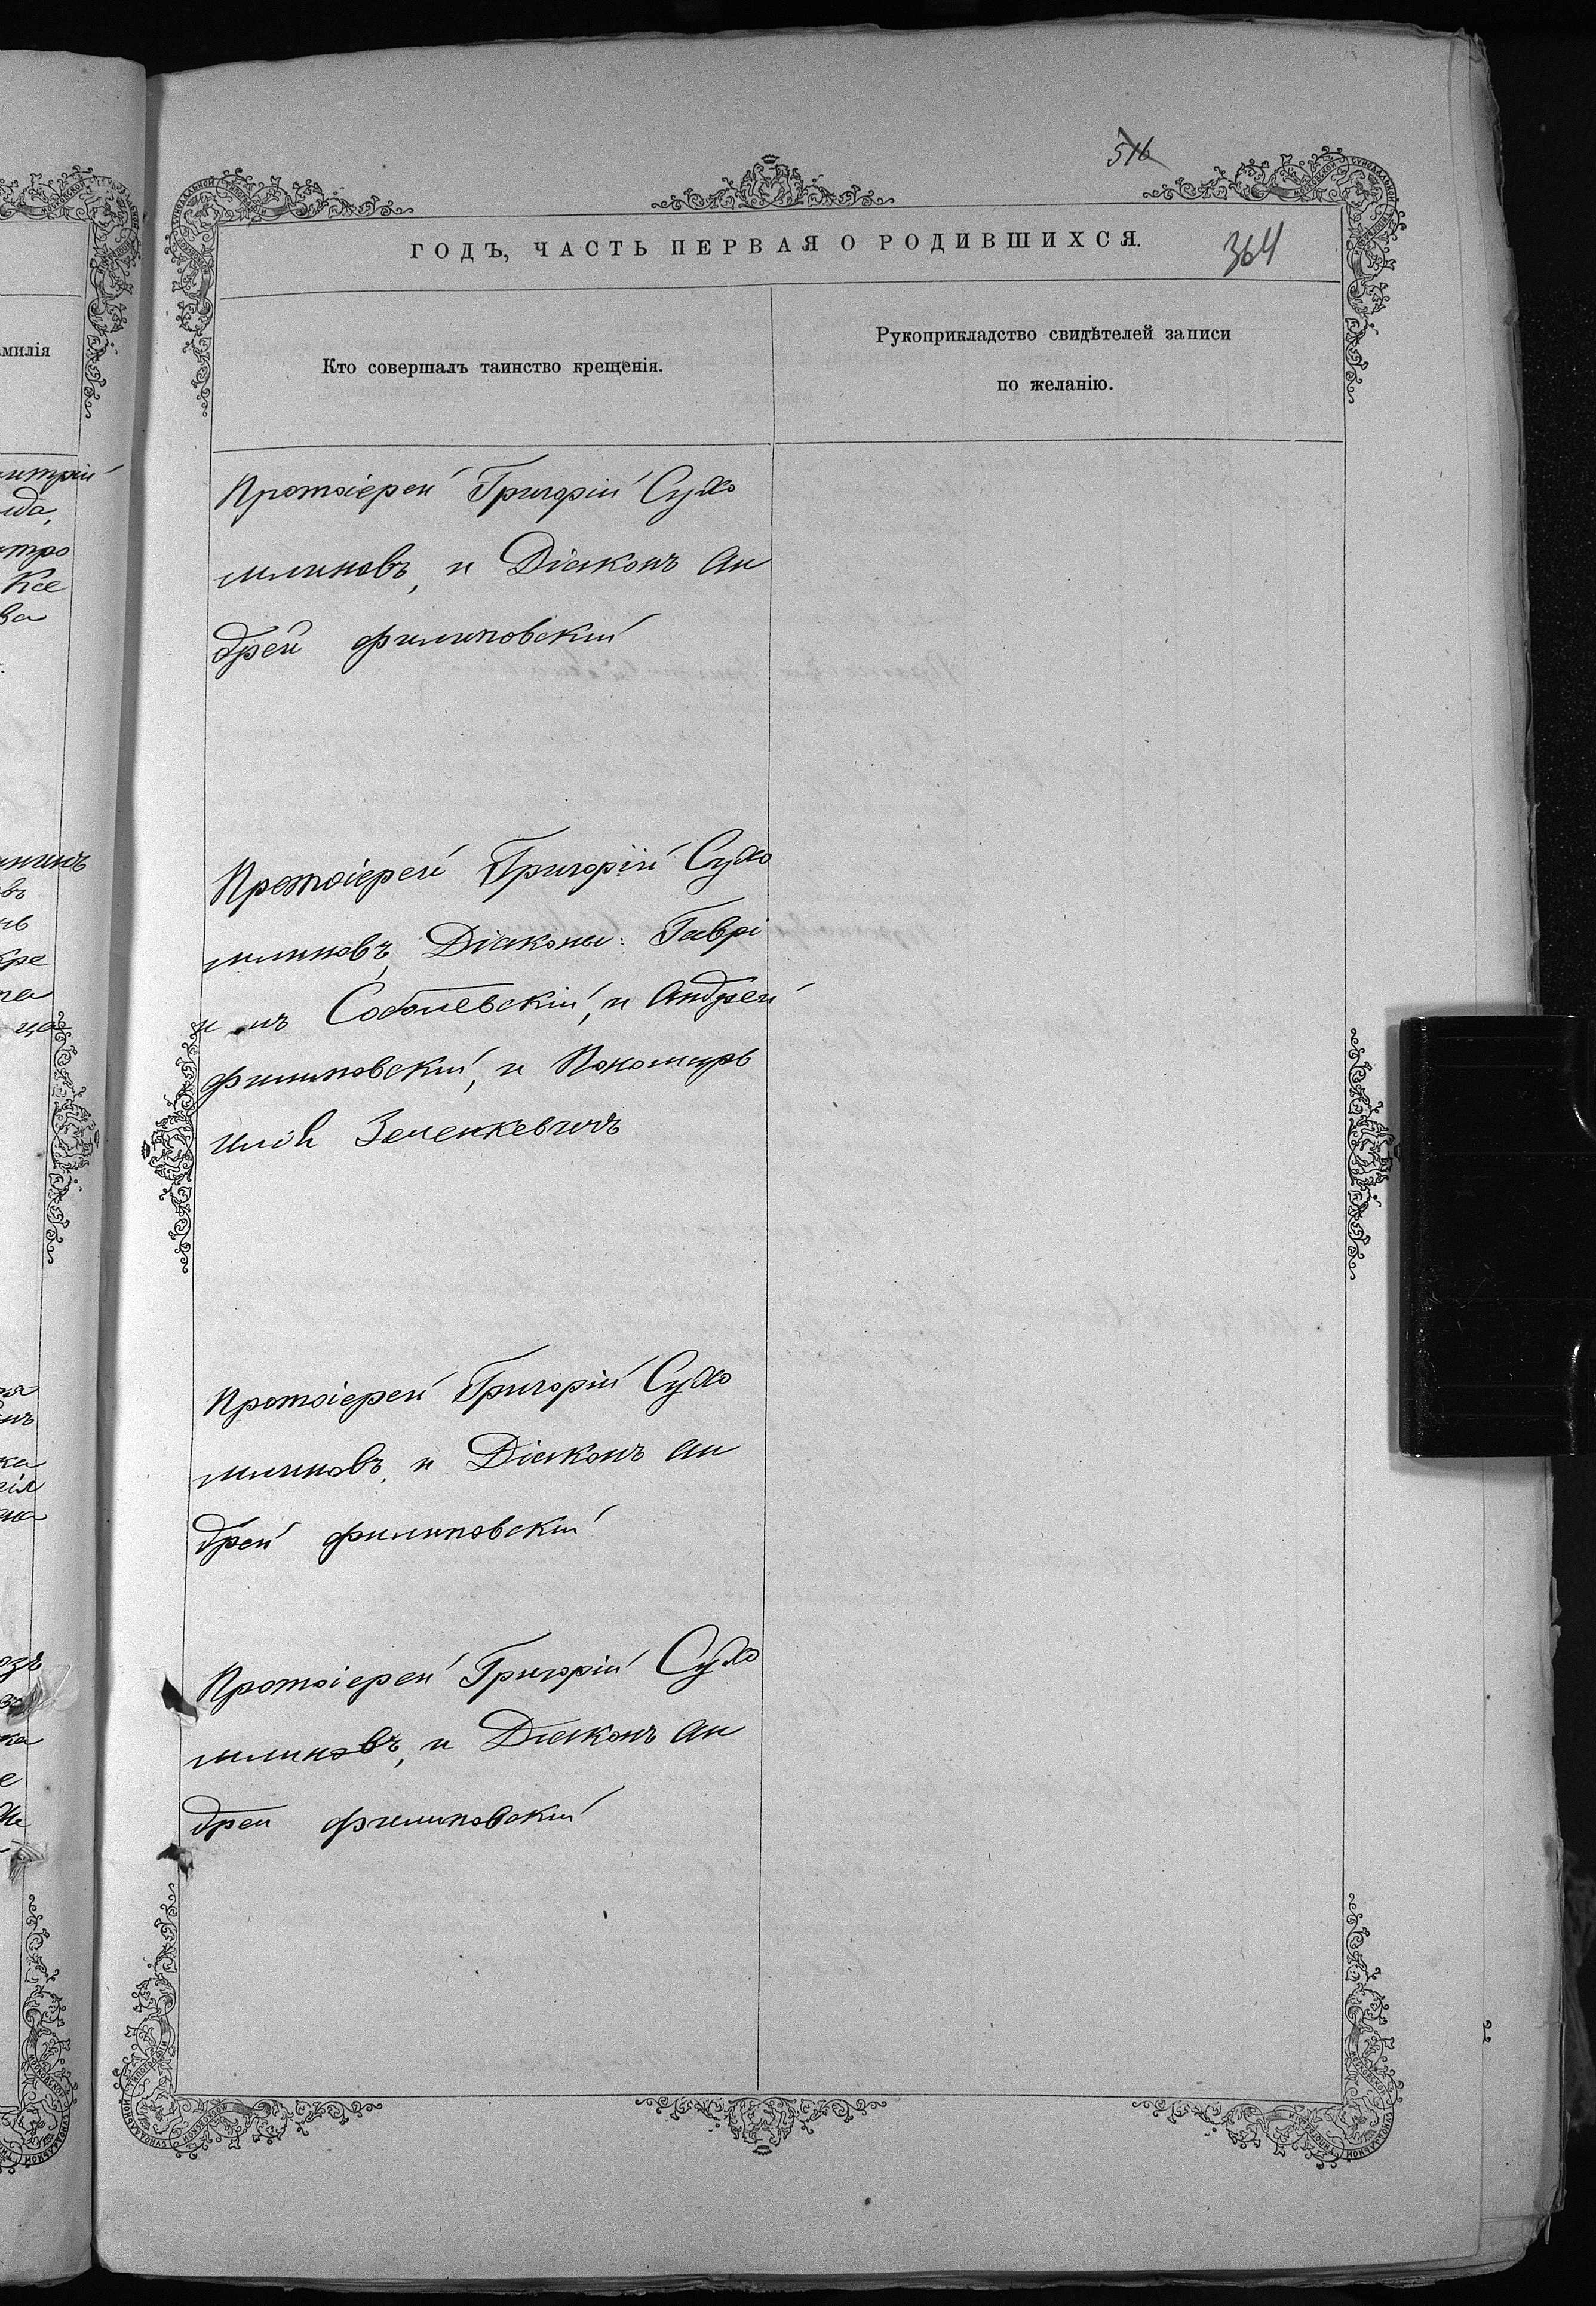 516
ГОДЪ, ЧАСТЬ ПЕРВАЯ О РОДИВШИХСЯ.
364
милія
Кто совершалъ таинство крещенія.
Рукоприкладство свидѣтелей записи
по желанію.
Протоіерей Григорій Сухо
млиновъ, и Діаконъ Ан
дрей Филиповскій
Протоіерей Григорій Сухо
млиновъ, Діаконы: Гаврі
и лъ Соболевскій, и Андрей
Филиповскій, и Пономарь
Илія Зеленкевичъ
Протоіерей Григорій Сухо
млиновъ, и Діаконъ Ан
дрей Филиповскій
Протоіерей Григорій Сухо
млиновъ, и Діаконъ Ан
дрей Филиповскій